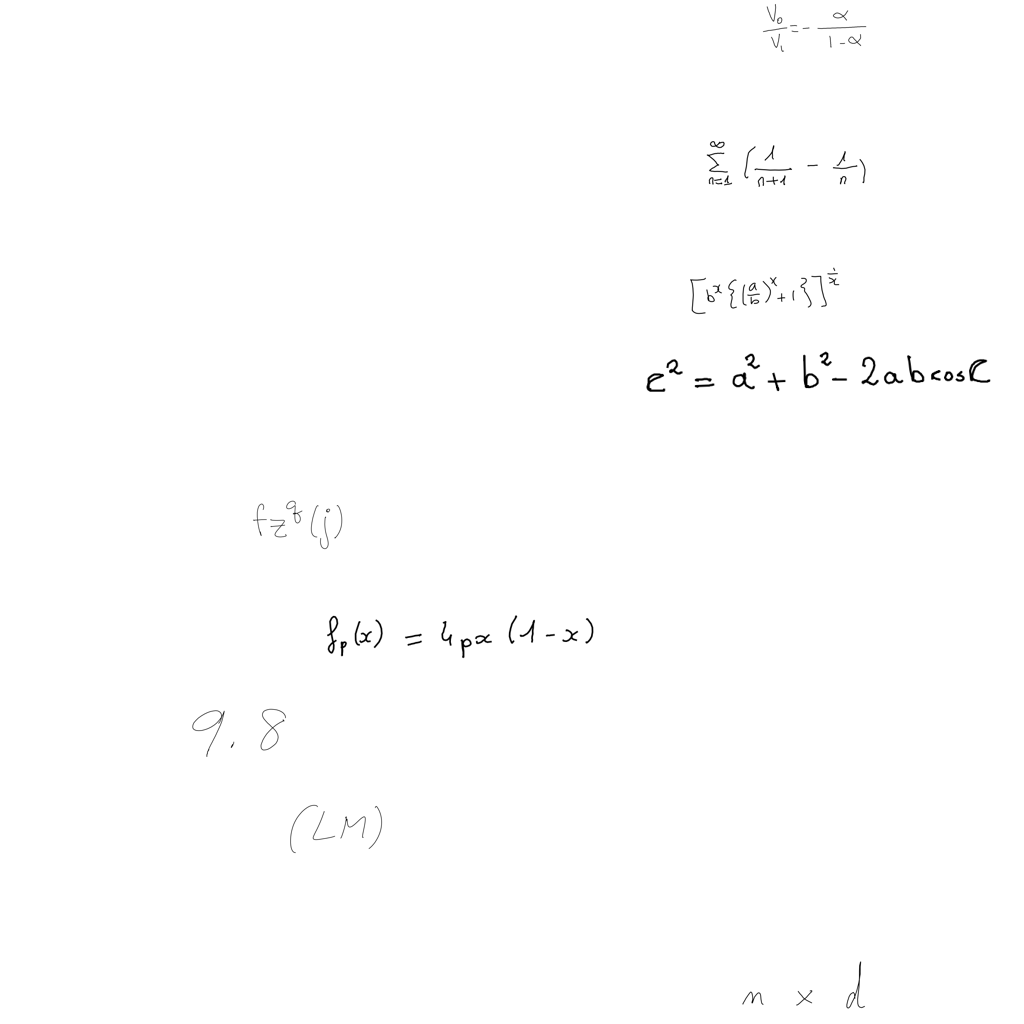 \frac{V_0}{V_1} = -\frac{\alpha}{1-\alpha}
\sum_{n=1}^{\infty} \left( \frac{1}{n+1} - \frac{1}{n} \right)
\left[ b^x \left\{ \left( \frac{a}{b} \right)^x + 1 \right\} \right]^{\frac{1}{x}}
c^2 = a^2 + b^2 - 2ab\cos C
fz^q(j)
f_p(x) = 4px(1-x)
9.8
(LM)
n \times d